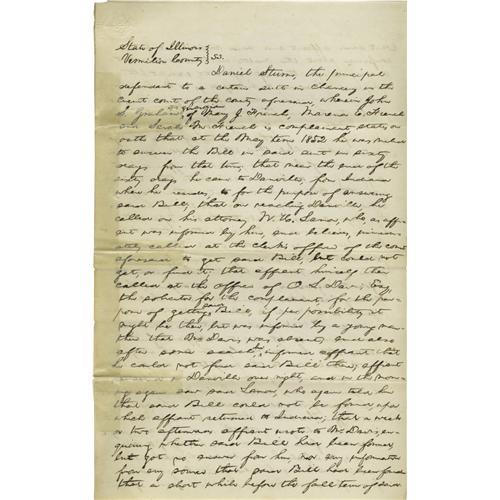 State of Illinois
Vermilion County } SS.
Daniel Sturm, the principal
defendant to a certain suit in chancery in the
circuit court of the county aforesaid, wherein John
S. as guardian of Mary J. French, C. French
and Sarah M. French is complainant states on
oath that at the May term 1852 he was ruled
to answer the Bill in said suit in sixty
days from that time, that near the end of the
sixty days he came to Danville, from Indiana
where he resides, for the purpose of answering
said Bill, that on reaching Danville, he
called on his attorney, W. H. Lamon, who, as affi-
ant was informed by him, and believes,
called at the clerk's office of the court
aforesaid to get said Bill, but could not
get, or find it that affiant himself then
called at the office of O. L. Davis, Esq
the solicitor for the complainant, for the pur-
pose of getting said Bill, if possibility it
might be there, but was informed by a young man
there that Mr Davis was absent, and also
after some search he informed affiant that
he could not find said Bill there; affiant
in Danville over night, and in the morn-
ing again saw said Lamon, who again told him
that said Bill could not be found, upon
which affiant returned to Indiana; that a week
or two afterwards affiant wrote to Mr Davis, en-
quiring whether said Bill had been found,
but got no answer from him, nor any information
from any source that said Bill had been found
that a short while before the fall term of said